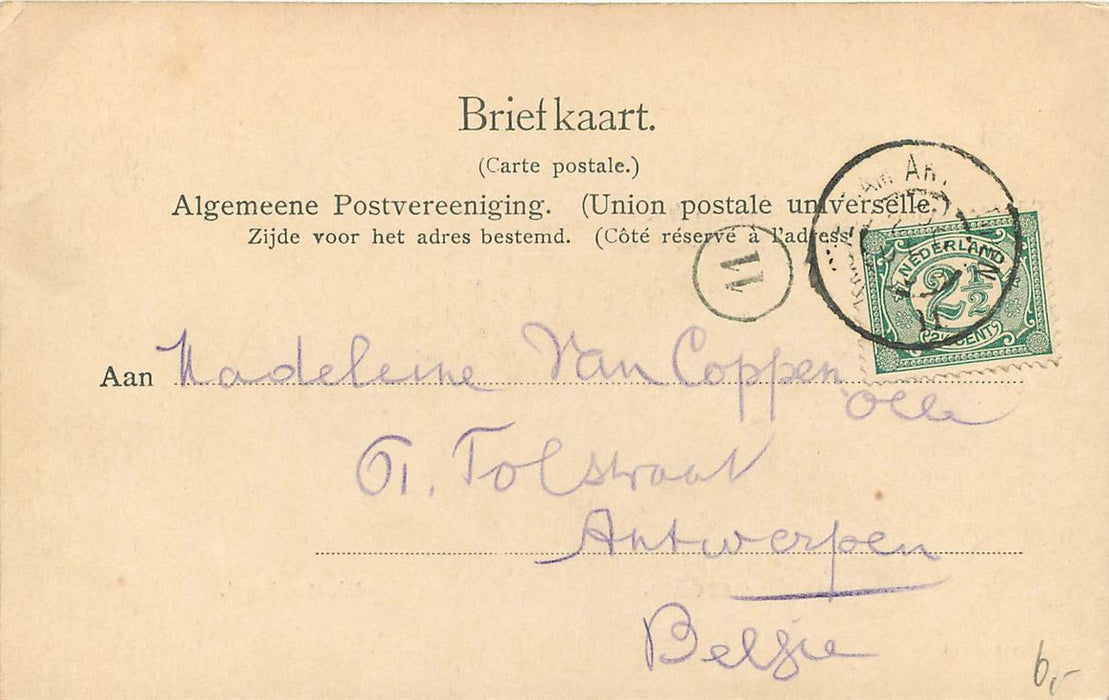 Briefkaart.
(Carte postale.)
Algemeene Postvereeniging. (Union postale universelle.)
Zijde voor het adres bestemd. (Côté réservé à l'adress
11
NEDERLAND
2½
(2½ CENT)
Aan Madeleine Van Coppen
olle
Tolstraat
Antwerpen
Belgie
6,-